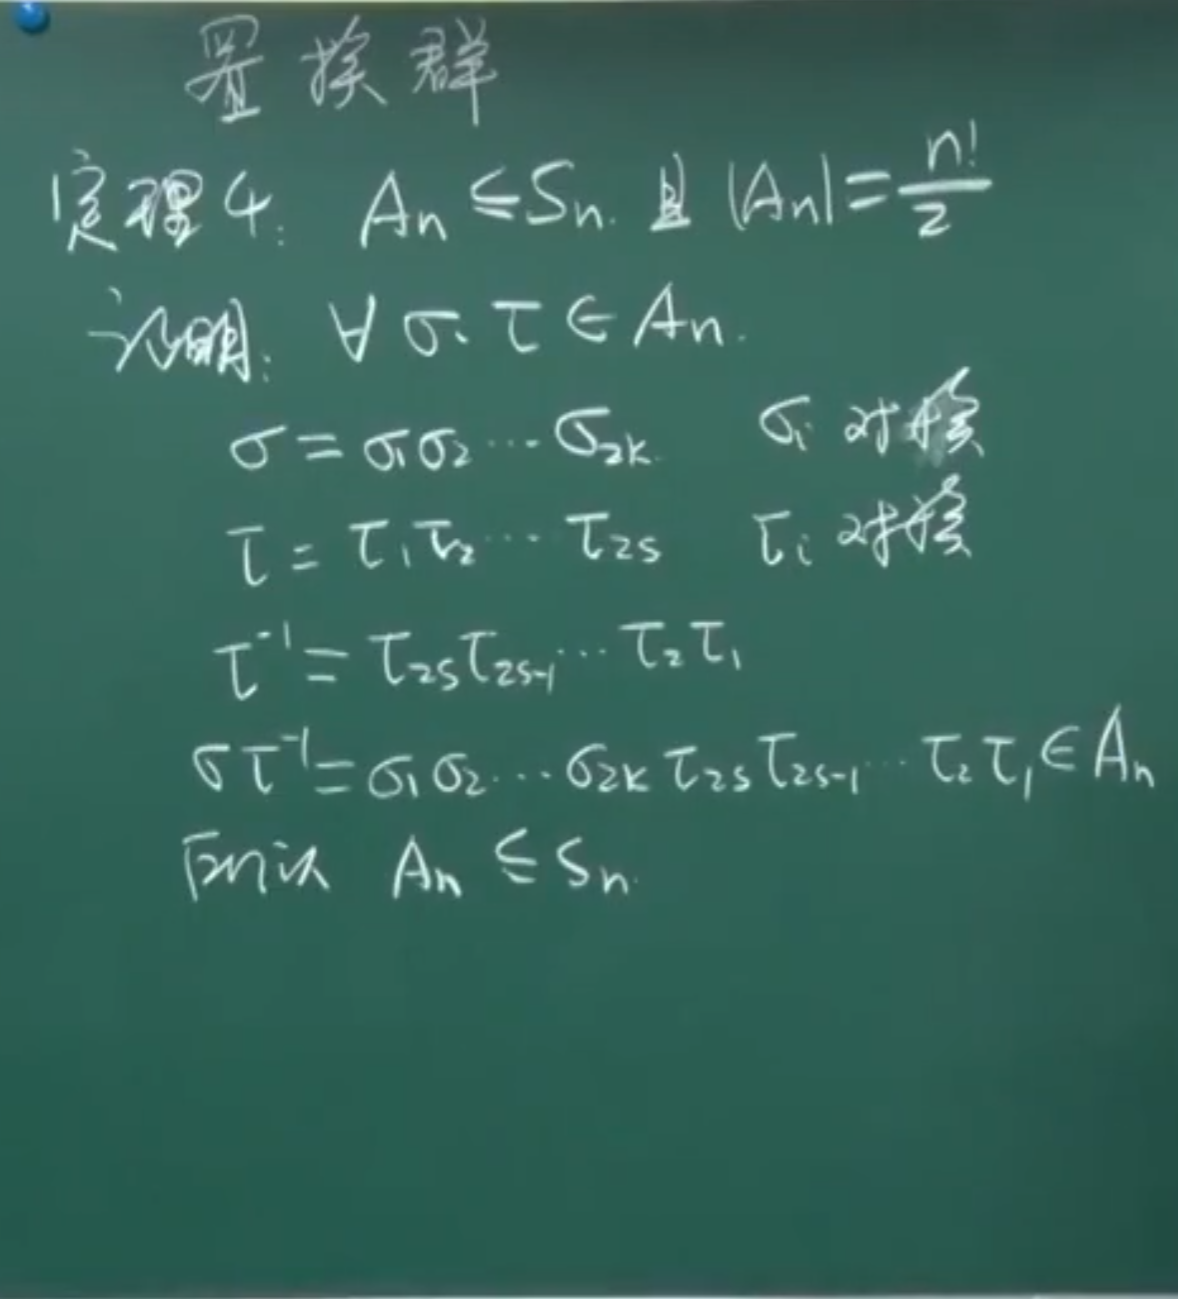 置换群
定理4: Aₙ ≤ Sₙ. 且 |Aₙ| = n!/2
证明: ∀ σ. τ ∈ Aₙ.
σ = σ₁σ₂⋯σ₂ₖ. σᵢ 对换
τ = τ₁τ₂⋯τ₂ₛ τᵢ 对换
τ⁻¹ = τ₂ₛτ₂ₛ₋₁⋯τ₂τ₁
στ⁻¹ = σ₁σ₂⋯σ₂ₖτ₂ₛτ₂ₛ₋₁⋯τ₂τ₁ ∈ Aₙ
所以 Aₙ ≤ Sₙ.